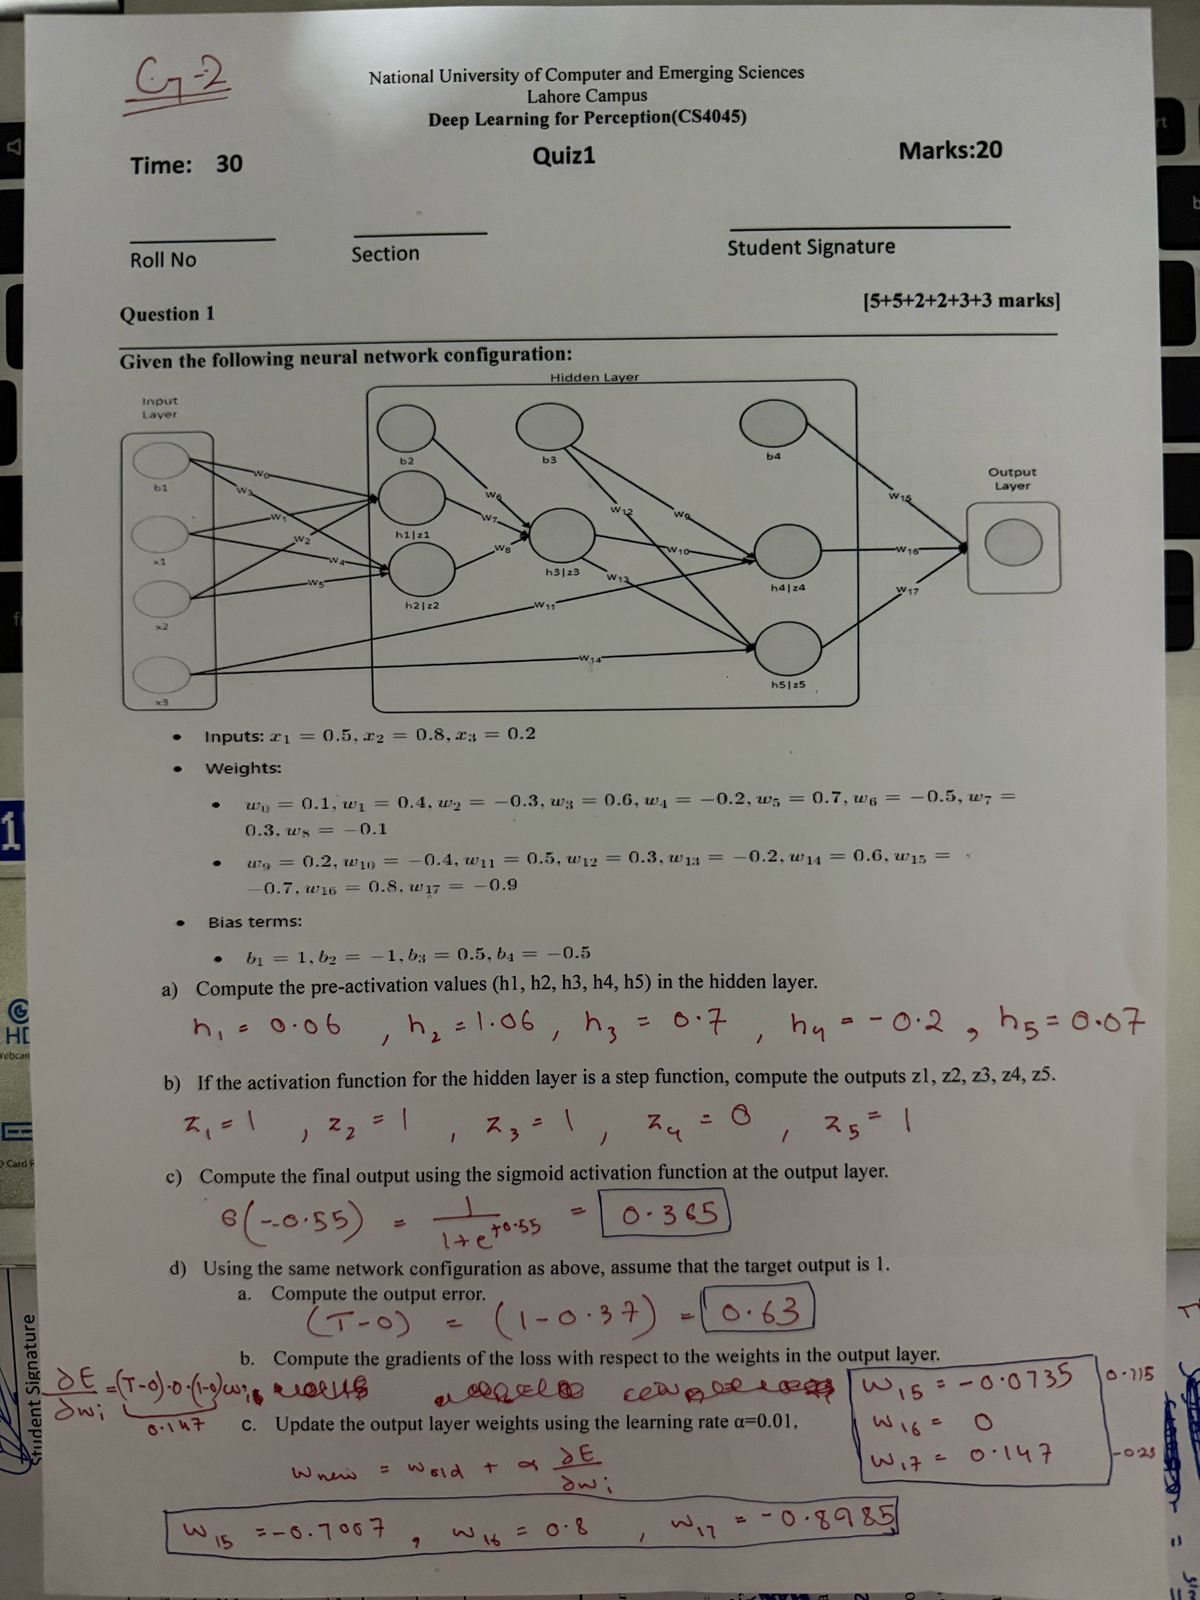 G-2
National University of Computer and Emerging Sciences
Lahore Campus
Deep Learning for Perception(CS4045)
Time: 30 Quiz1 Marks:20
Roll No Section Student Signature
Question 1 [5+5+2+2+3+3 marks]
Given the following neural network configuration:
Hidden Layer
Input
Layer
b1
x1
x2
x3
w0
w3
w1
w2
w4
w5
b2
h1|z1
h2|z2
w6
w7
w8
b3
h3|z3
w12
w9
w10
w13
w11
w14
b4
h4|z4
h5|z5
w15
w16
w17
Output
Layer
• Inputs: x1 = 0.5, x2 = 0.8, x3 = 0.2
• Weights:
• w0 = 0.1, w1 = 0.4, w2 = −0.3, w3 = 0.6, w4 = −0.2, w5 = 0.7, w6 = −0.5, w7 =
0.3, w8 = −0.1
• w9 = 0.2, w10 = −0.4, w11 = 0.5, w12 = 0.3, w13 = −0.2, w14 = 0.6, w15 =
−0.7, w16 = 0.8, w17 = −0.9
• Bias terms:
• b1 = 1, b2 = −1, b3 = 0.5, b4 = −0.5
a) Compute the pre-activation values (h1, h2, h3, h4, h5) in the hidden layer.
h1 = 0.06 , h2 = 1.06 , h3 = 0.7 , h4 = -0.2 , h5 = 0.07
b) If the activation function for the hidden layer is a step function, compute the outputs z1, z2, z3, z4, z5.
z1 = 1 , z2 = 1 , z3 = 1 , z4 = 0 , z5 = 1
c) Compute the final output using the sigmoid activation function at the output layer.
6(-0.55) = 1/1+e^+0.55 = 0.365
d) Using the same network configuration as above, assume that the target output is 1.
a. Compute the output error.
(T-O) = (1-0.37) = 0.63
b. Compute the gradients of the loss with respect to the weights in the output layer.
∂E/∂wi = (T-o).o.(1-o)wi
0.147
w15 = -0.0735
w16 = 0
w17 = 0.147
0.115
-0.23
c. Update the output layer weights using the learning rate α=0.01,
wnew = wold + α ∂E/∂wi
w15 = -0.7007 , w16 = 0.8 , w17 = -0.8985
Student Signature
HD
Webcam